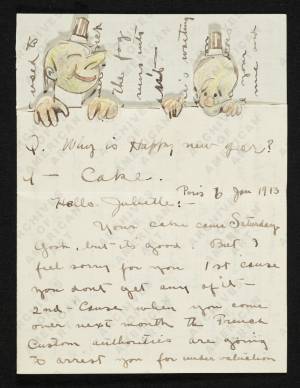 used to
the fog
isn't
waiting
you
Q. Why is Happy new year?
A - Cake.
Paris 6 Jan 1913
Hello. Juliette: -
Your cake came Saturday
Gosh, but it's good. But I
feel sorry for you 1st cause
you don't get any of it -
2nd - Cause when you come
over next month the French
Custom authorities are going
to arrest you for under valuation